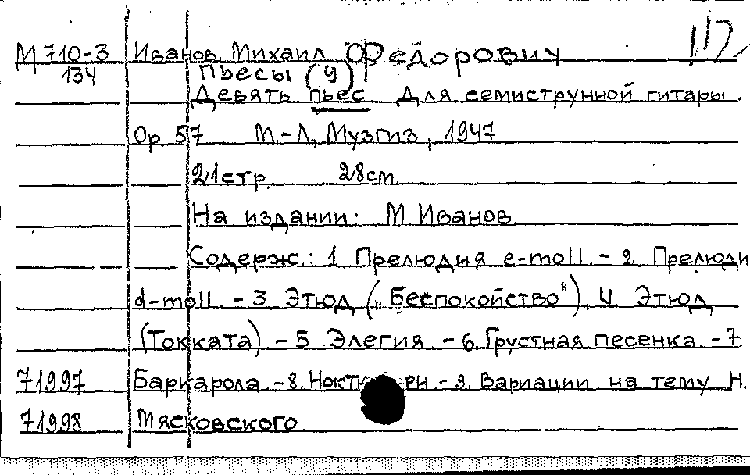 М 710-3 Иванов Михаил Федорович
134 Пьесы (9)
Девять пьес Для семиструнной гитары.
Ор 57 М-Л, Музгиз, 1947
21стр. 28см
На издании: М Иванов
Содерж.: 1 Прелюдия e-moll. - 2. Прелюди
d-moll. - 3 Этюд („Беспокойство") 4 Этюд
(Токката) - 5 Элегия - 6 Грустная песенка - 7
71997 Баркарола - 8 - 9. Вариации на тему Н.
71998 Мясковского